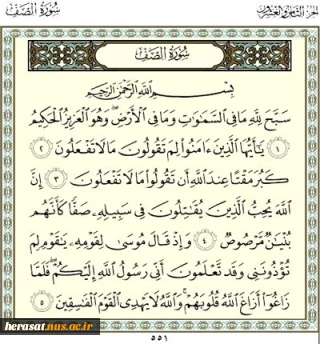 سُورَةُ الصَّفِّ
الجزء الثامن والعشرون
سُورَةُ الصَّفِّ
بِسْمِ اللَّهِ الرَّحْمَٰنِ الرَّحِيمِ
سَبَّحَ لِلَّهِ مَا فِي السَّمَٰوَٰتِ وَمَا فِي الْأَرْضِ ۖ وَهُوَ الْعَزِيزُ الْحَكِيمُ
١ يَٰٓأَيُّهَا الَّذِينَ ءَامَنُوا لِمَ تَقُولُونَ مَا لَا تَفْعَلُونَ ٢
كَبُرَ مَقْتًا عِندَ اللَّهِ أَن تَقُولُوا مَا لَا تَفْعَلُونَ ٣ إِنَّ
اللَّهَ يُحِبُّ الَّذِينَ يُقَٰتِلُونَ فِي سَبِيلِهِ صَفًّا كَأَنَّهُم
بُنْيَٰنٌ مَّرْصُوصٌ ٤ وَإِذْ قَالَ مُوسَىٰ لِقَوْمِهِ يَٰقَوْمِ لِمَ
تُؤْذُونَنِي وَقَد تَّعْلَمُونَ أَنِّي رَسُولُ اللَّهِ إِلَيْكُمْ ۖ فَلَمَّا
زَاغُوا أَزَاغَ اللَّهُ قُلُوبَهُمْ ۚ وَاللَّهُ لَا يَهْدِي الْقَوْمَ الْفَٰسِقِينَ ٥
٥٥١
herasat.nus.ac.ir